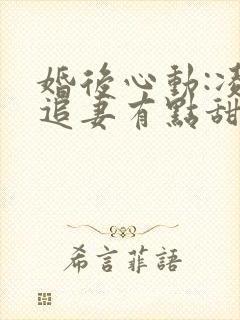 婚後心動:凌
追妻有點甜
希言菲語